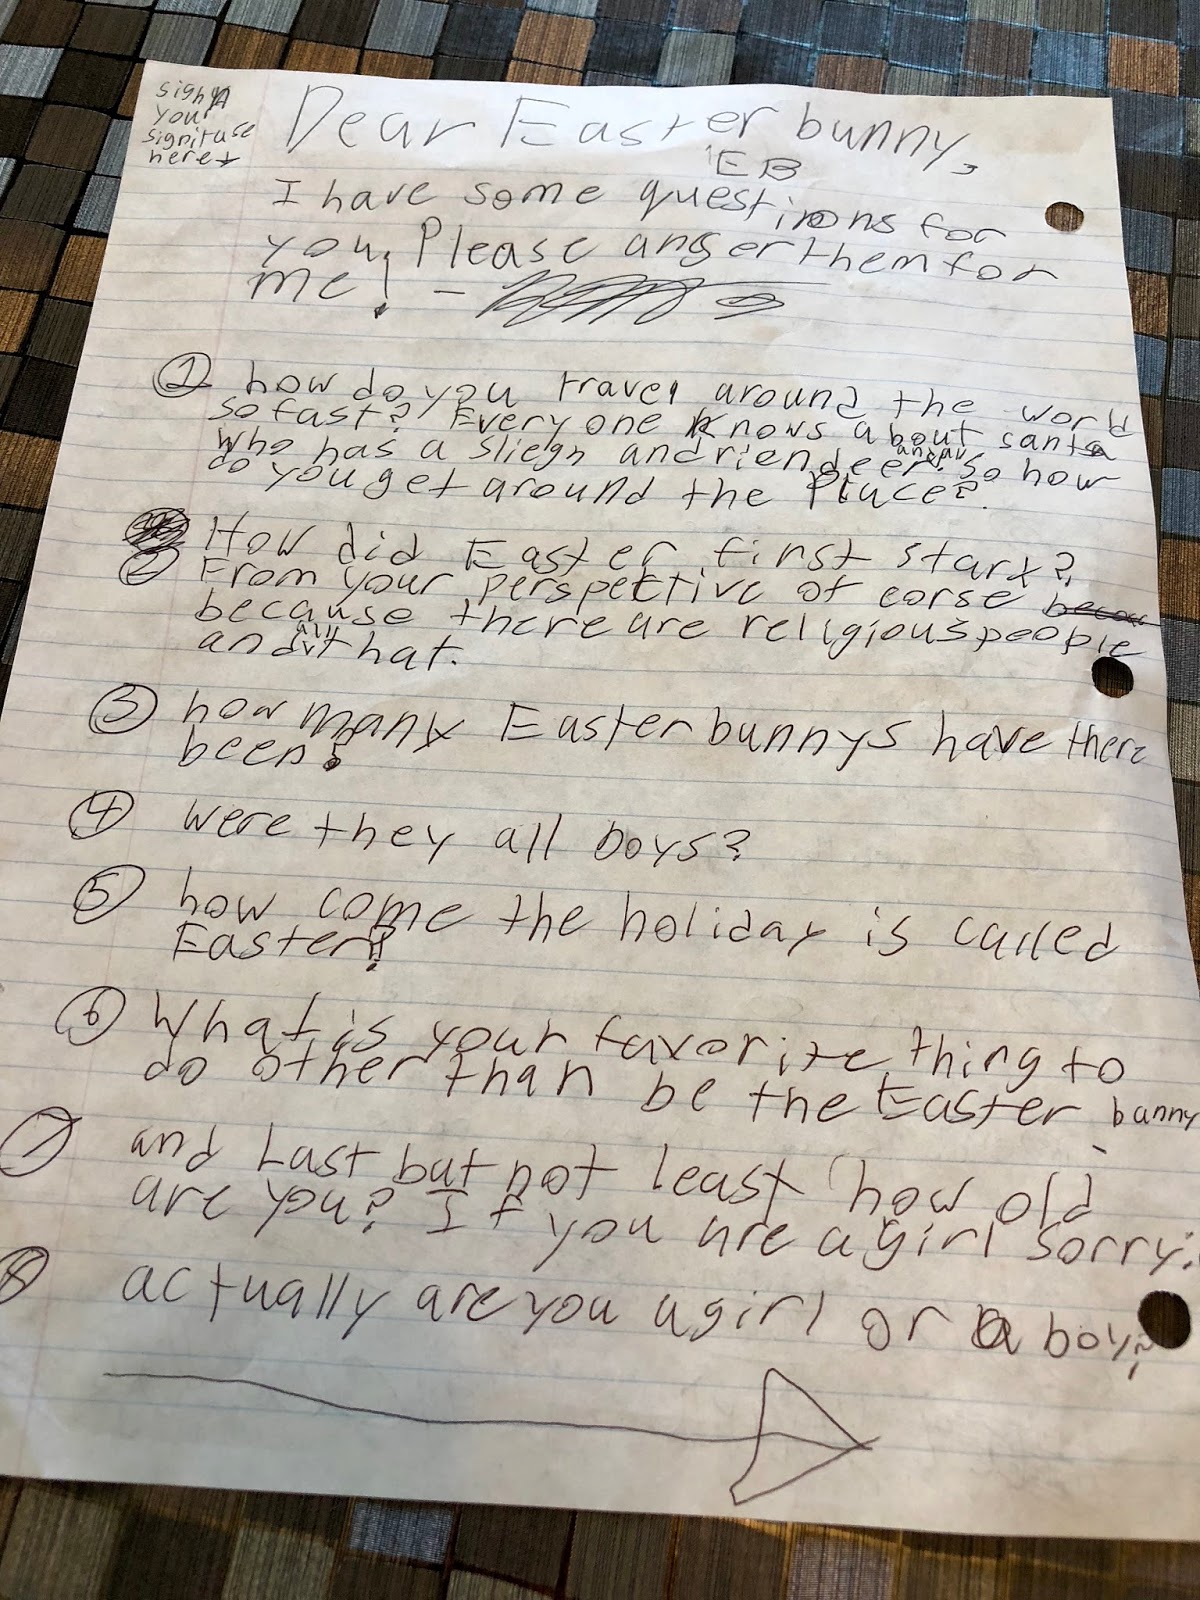 sign
your
signituse
here
Dear Easter bunny,
EB
I have some questions for
you, Please anser them for
me! -
1 how do you travel around the world
so fast? Everyone knows about santa
who has a sliegh and riendeer. So how
do you get around the Place?
How did Easter first start?
2 From your perspective of corse
because there are religious people
and all that.
3 how many Easter bunnys have there
been?
4 were they all boys?
5 how come the holiday is called
Easter?
6 What is your favorite thing to
do other than be the Easter bunny
7 and Last but not least how old
are you? If you are a girl sorry.
8 actually are you a girl or a boy?